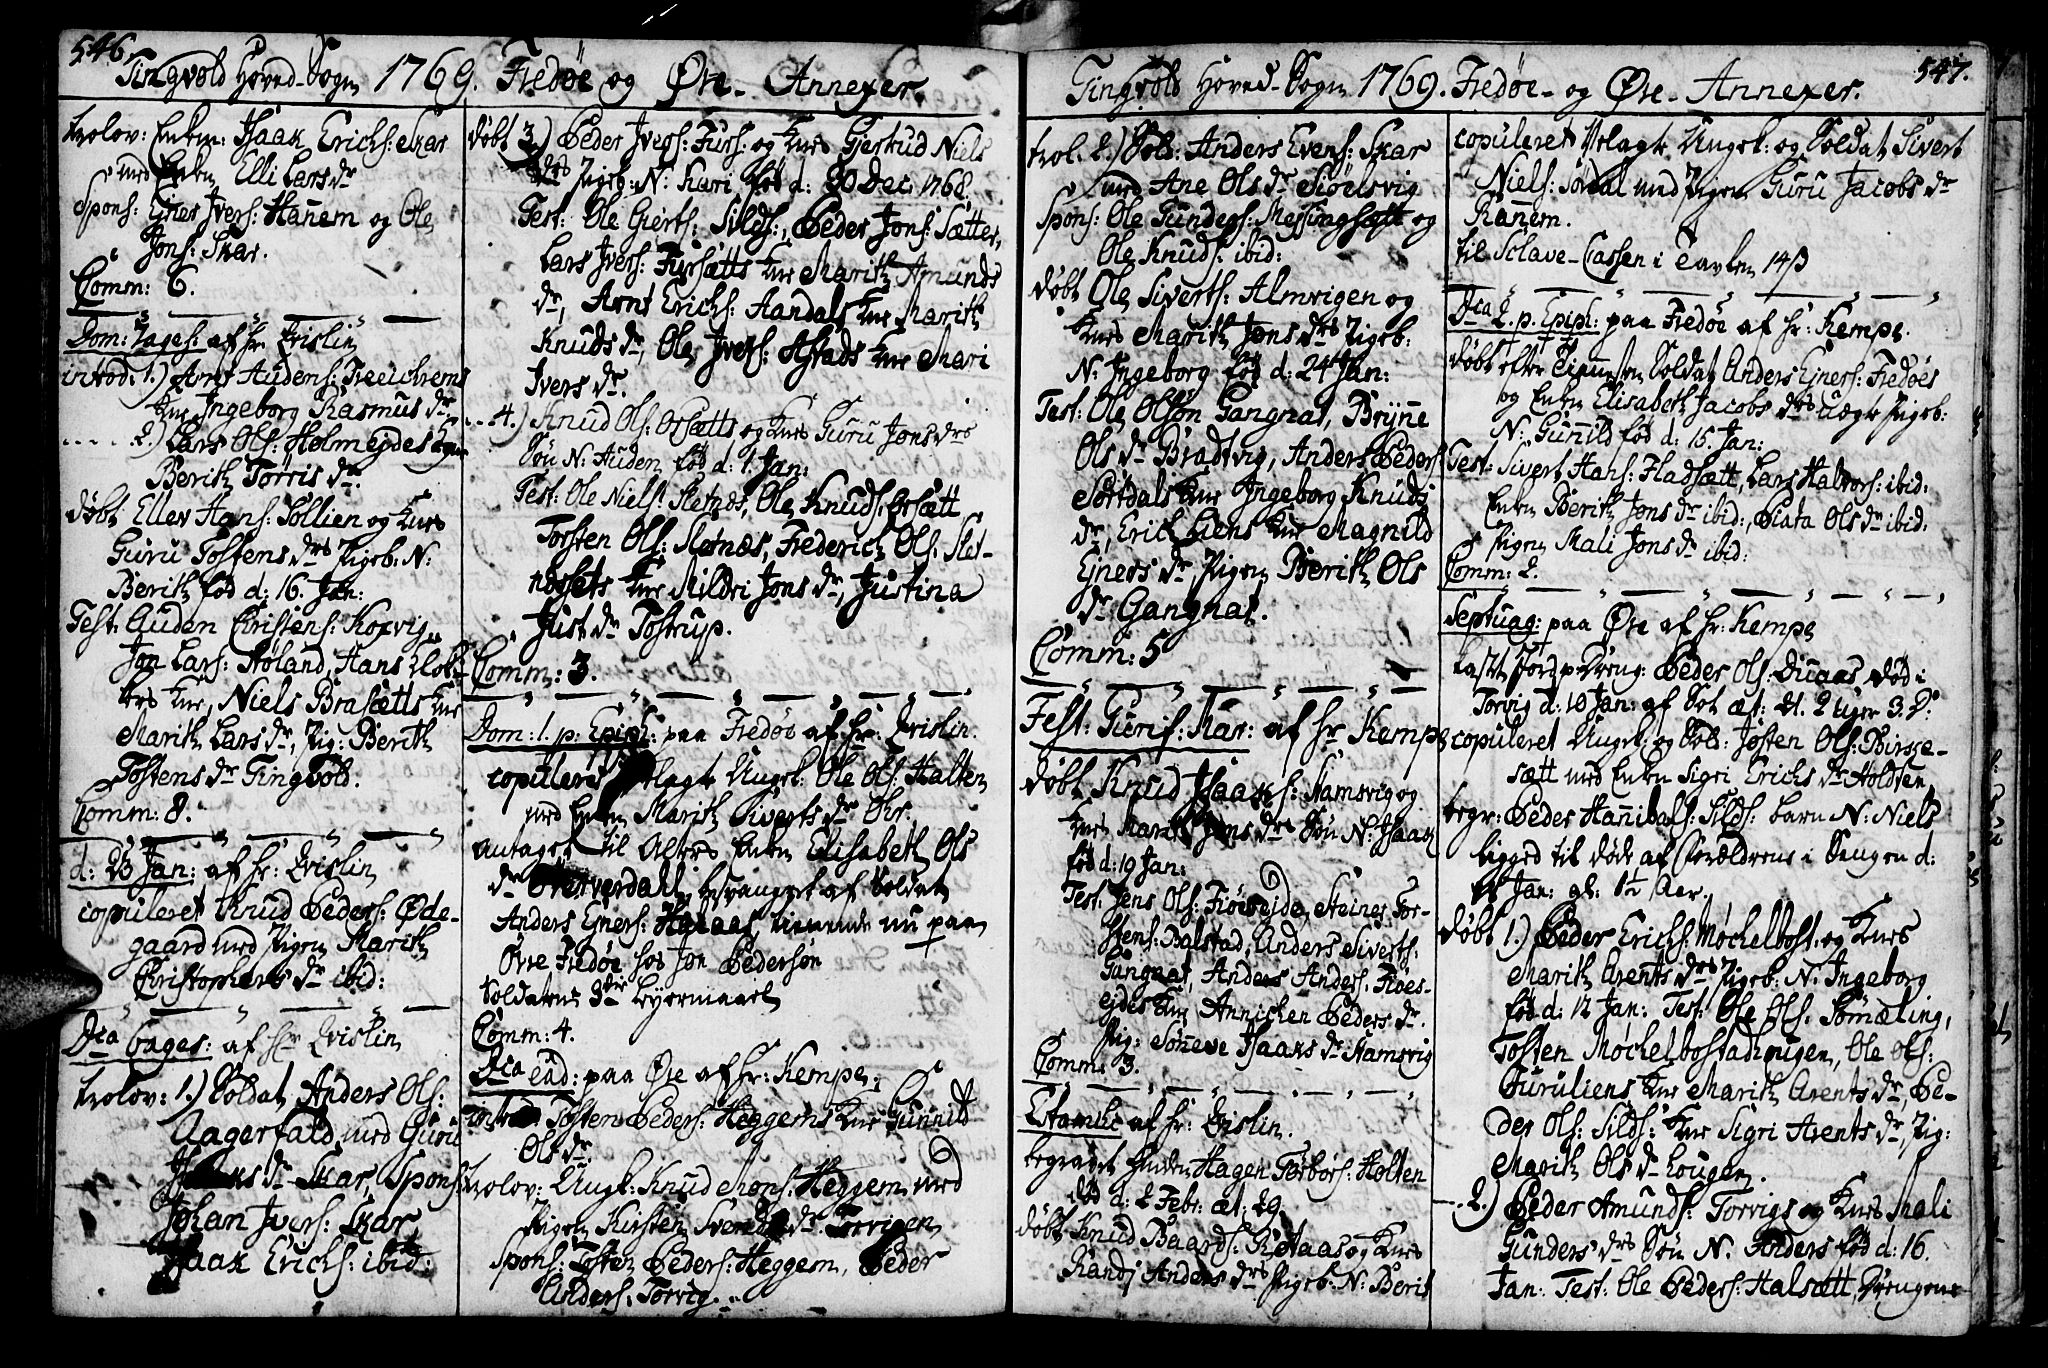 546.
Tingvold Hoved-Sogn 1769. Fredøe og Øre- Annexer.
trolov: Enkem: Isaak Erichs: Skar
med Enken Elli Lars dr
Spons: Ejner Ivers: Hanem og Ole
Jons: Skar.
Comm: 6.
Dom: Sages: af Hr Qvislin
introd: 1.) Arnt Audens:
Kne Ingeborg Rasmus dr
2.) Lars Ols: Holmeydes Kone
Berith Torris dr.
døbt Ellev Hans: Sollien og Knes
Guru Tostens drs Pigeb: N:
Berith fød d: 16. Jan:
Test: Auden Christens: Korsvig
Jon Lars: Høland, Hans
Kne, Niels Brasætts Kne
Marith Lars dr, Pig: Berith
Tostens dr Tingvold.
Comm: 8.
d: 23 Jan: af Hr: Qvislin
copuleret Knud Peders: Øde-
gaard med Pigen Marith
Christophers dr ibid:
Dca 6ages: af Hr Qvislin
trolov: 1.) Soldat Anders Ols:
Aagerfald med Guru
dr Skar, Spons:
Johan Ivers: Skar
Isaak Erichs: ibid:
døbt 3.) Peder Ivers: Furs: og Knes Gjertrud Niels
drs Pigeb: N: Kari fød d: 30 Dec. 1768.
Test: Ole Gierts: Silds:, Peder Jons: Sætter,
Lars Ivers: Fursætts Kne Marith Amunds
dr, Arnt Erichs: Aandals Kne Marith
Knuds dr, Ole Ivers: Astads Kne Mari
Ivers dr.
4.) Knud Ols: Orsætts og Knes Guru Jons drs
Søn N: Auden fød d: 1. Jan:
Test: Ole Niels: Sletnes, Ole Knuds: Orsætt
Torsten Ols: Sletnæs, Frederich Ols: Slet-
nesets Kne Mildri Jons dr, Justina
Just dr Tostrup.
Comm: 3.
Dom: 1. p: Epiph: paa Fredøe af Hr: Qvislin.
copuleret Ungk: Ole Ols: Halten
med Enken Marith Siverts dr Ohr.
antaget til Alters Enken Elisabeth Ols
dr besvangret af Soldat
Anders Ejners: tienende nu paa
Øvre Fredøe hos Jon Pedersøn
Soldatens 3die Leyermaael
Comm: 4.
Dca ead: paa Øre af Hr: Kempe.
introd Tosten Peders: Heggems Kne Gunnild
Ols dr.
trolov: Ungk: Knud Mons: Heggem med
Pigen Kirsten dr Torvigen
Spons: Tosten Peders: Heggem, Peder
Anders: Torvig.
547.
Tingvold Hoved-Sogn 1769. Fredøe- og Øre- Annexer.
trol. 2.) Sold: Anders Evens: Skar
med Ane Ols dr Siølsvig
Spons: Ole Gunders: Messingsætt og
Ole Knuds: ibid:
døbt Ole Siverts: Almvigen og
Knes Marith Jons drs Pigeb:
N: Ingeborg fød d: 24 Jan:
Test: Ole Olsøn Gangnat, Brynne
Ols dr Bradtvig, Anders Peders
Sørtdals Kne Ingeborg Knuds
dr, Erich Liens Kne Magnild
Ejners dr Pigen Berith Ols
dr Gangnat.
Comm: 5
Fest: Purif: Mar: af Hr Kempe
døbt Knud Isaaks: Stamsvig og
Knes Marit Jons drs Søn N: Isaak
fød d: 19 Jan:
Test: Jens Ols: Fiøesejde, Steiner Tor-
stens: Balstad, Anders Siverts:
Gangnat, Anders Anders: Fiøes-
ejdes Kne Annichen Peders dr.
Pig: Sønneve Isaaks dr Stamsvig
Comm: 3.
Estomihi af Hr: Qvislin.
begravet Hagen Torbørs: Holten
død d: 2 Febr: æt: 29.
døbt Knud Baards: og Knes
Randi Anders drs Pigeb: N: Berit
copuleret Ungk: og Soldat Sivert
Niels: Sørdal med Pigen Guru Jacobs dr
Ranem.
til Sclave-Cassen i Tavlen 14 ß
Dca 2. p. Epiph: paa Fredøe af Hr: Kempe.
døbt efter Soldat Anders Ejners: Fredøes
og Enken Elisabeth Jacobs drs uægte Pigeb:
N: Gunild fød d: 15. Jan:
Test: Sivert Hans: Fladsætt, Lars Halvors: ibid:
Enken Berith Jons dr ibid:, Beata Ols dr ibid:
Pigen Mali Jons dr ibid:
Comm: 2.
Septuag: paa Øre af Hr: Kempe
kastet Jord p: Dreng: Peder Ols: død i
Torvig d: 10 Jan: af Sot æt: 21. 2 Uger 3. D:
copuleret Ungk: og Sold: Josten Ols: Birke-
sætt med Enken Sigri Erichs dr Holdten
begr: Peder Hannibals: Silds: Barn N: Niels
ligged til døde af Forældrene i Sengen d:
Jan: gl: 1½ Aar.
døbt 1.) Peder Erichs: Møchelbost og Knes
Marith Arents drs Pigeb: N: Ingeborg
fød d: 12 Jan: Test: Ole Ols: Sømæling,
Tosten Møchelbostadhougen, Ole Ols:
Furuliens Kne Marith Arents dr, Pe-
der Ols: Silds: Kne Sigri Arents dr, Pig:
Marith Ols dr Hougen.
2.) Peder Amunds: Torvigs og Knes Mali
Gunders drs Søn N: Anders fød d: 16.
Jan: Test: Ole Peders: Halsætt, Drengene